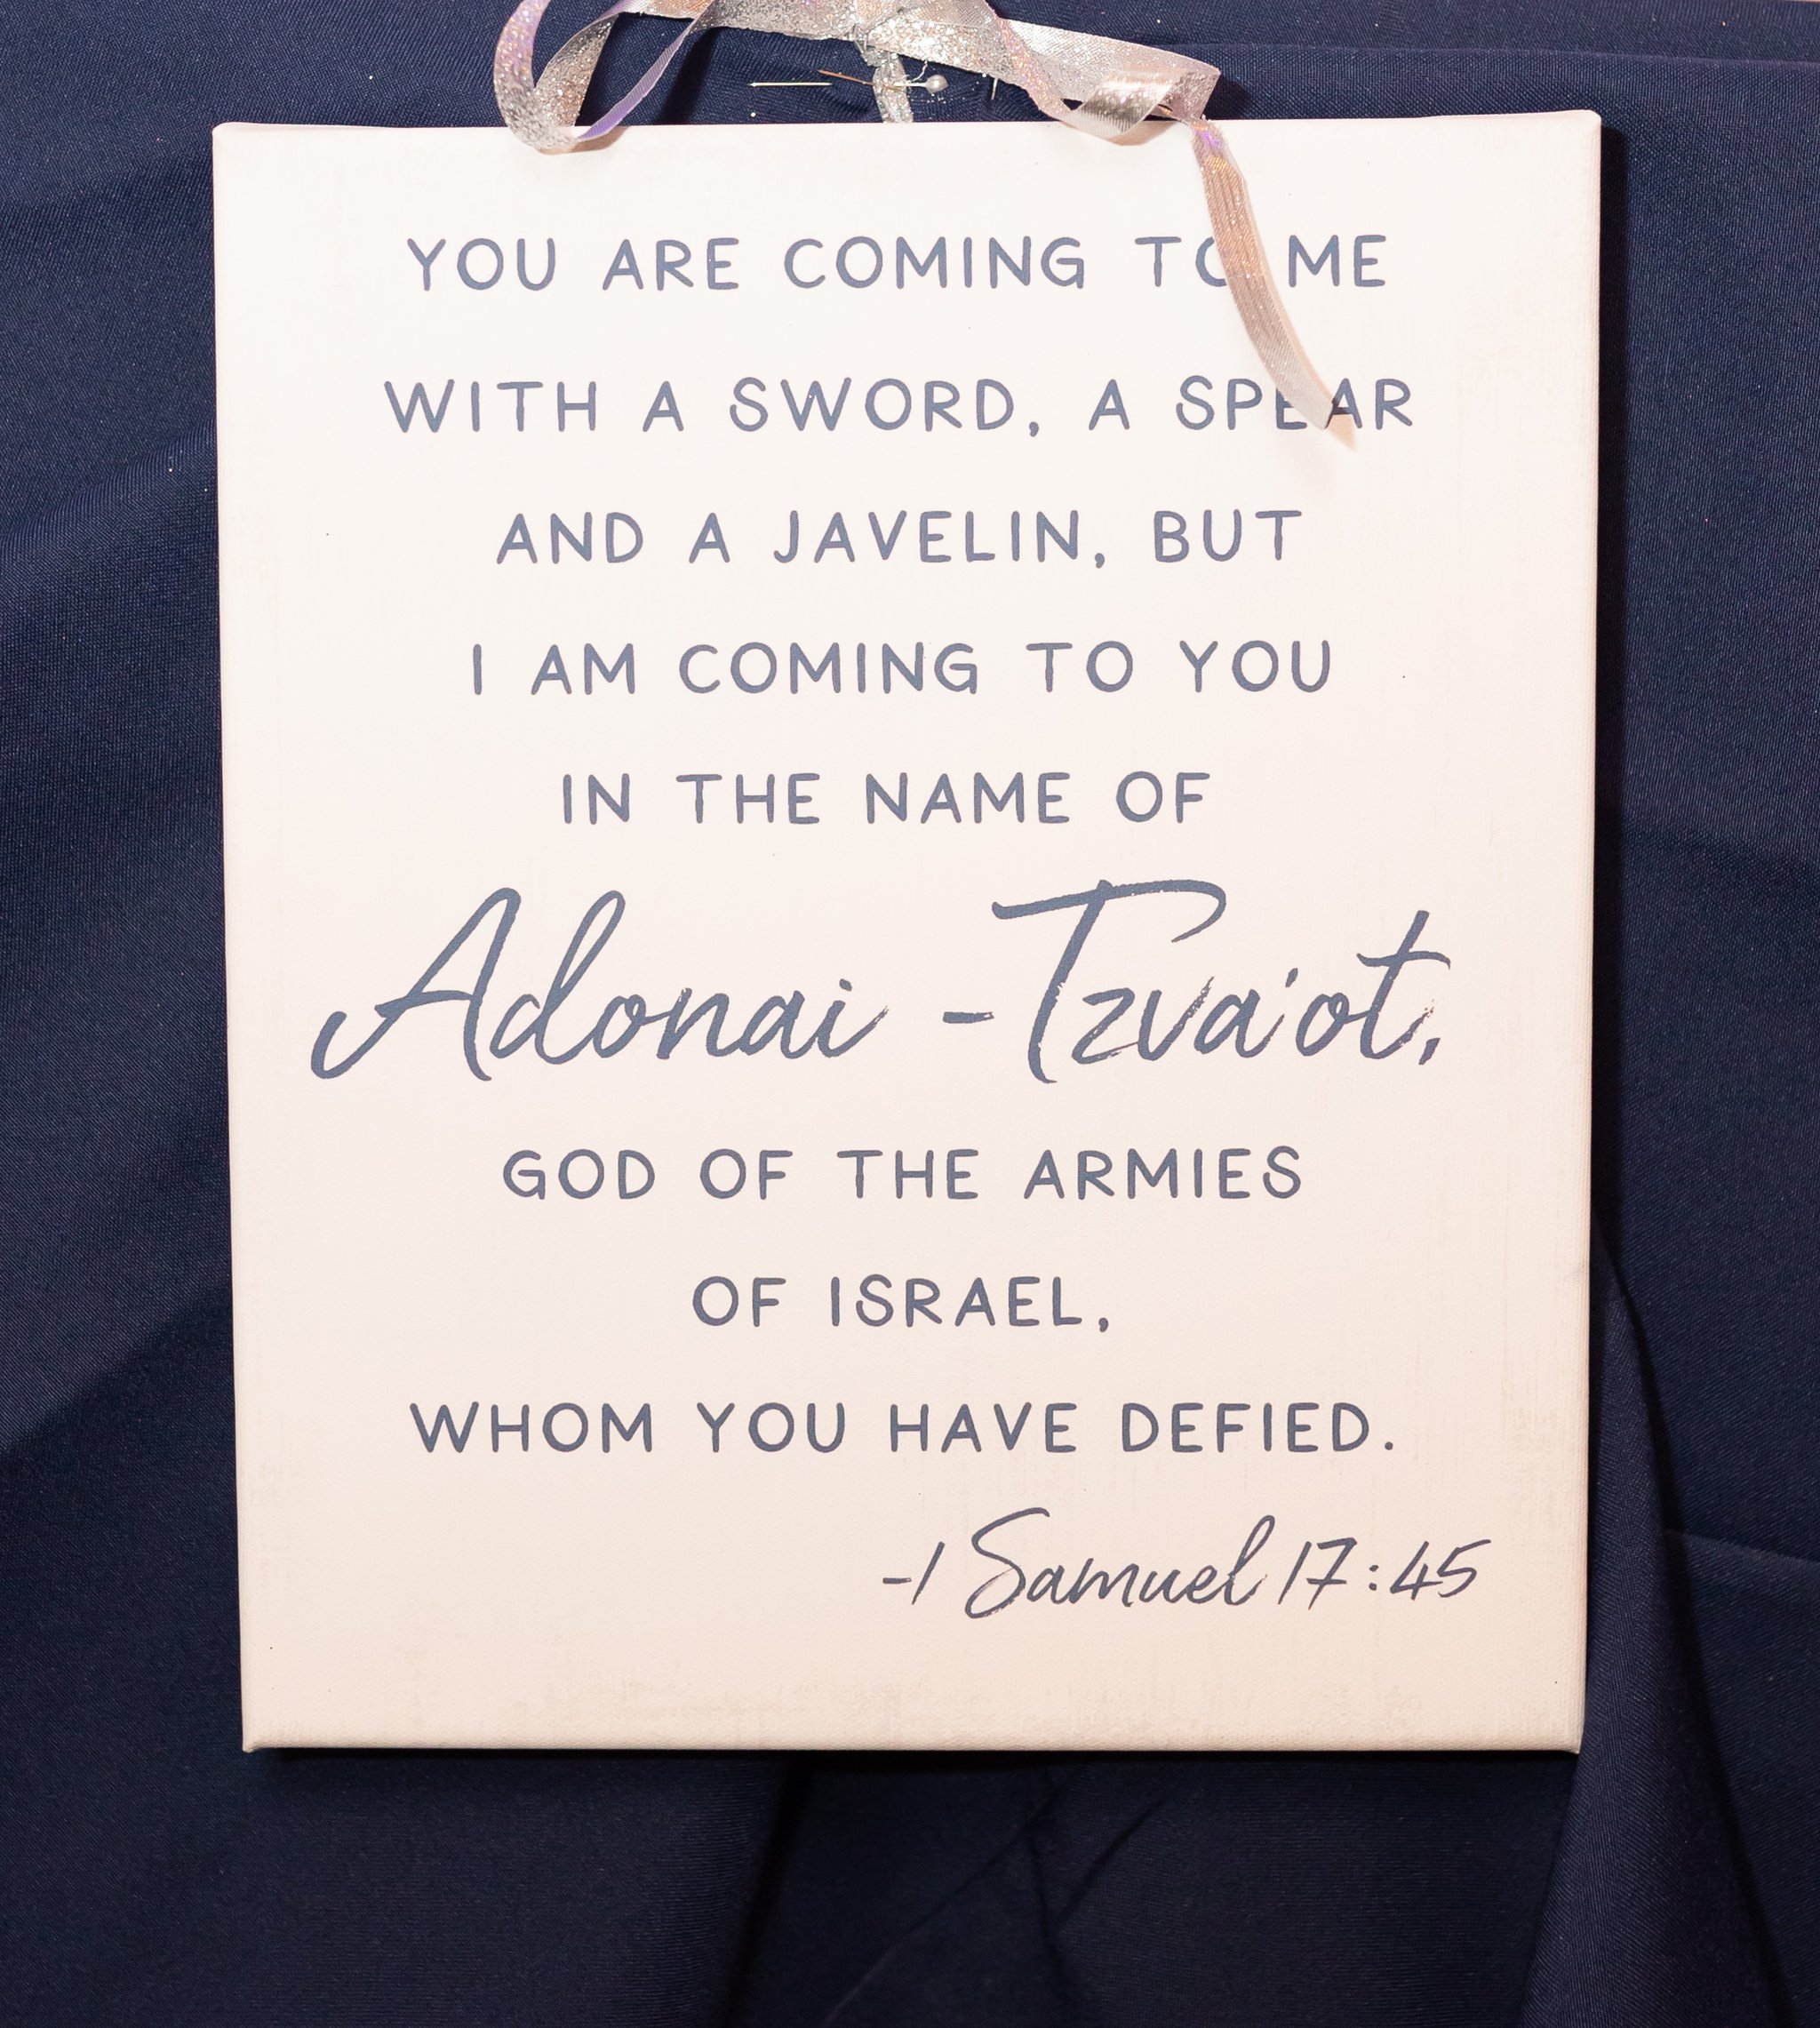 YOU ARE COMING TO ME
WITH A SWORD, A SPEAR
AND A JAVELIN, BUT
I AM COMING TO YOU
IN THE NAME OF
Adonai -Tzva'ot,
GOD OF THE ARMIES
OF ISRAEL,
WHOM YOU HAVE DEFIED.
-1 Samuel 17:45